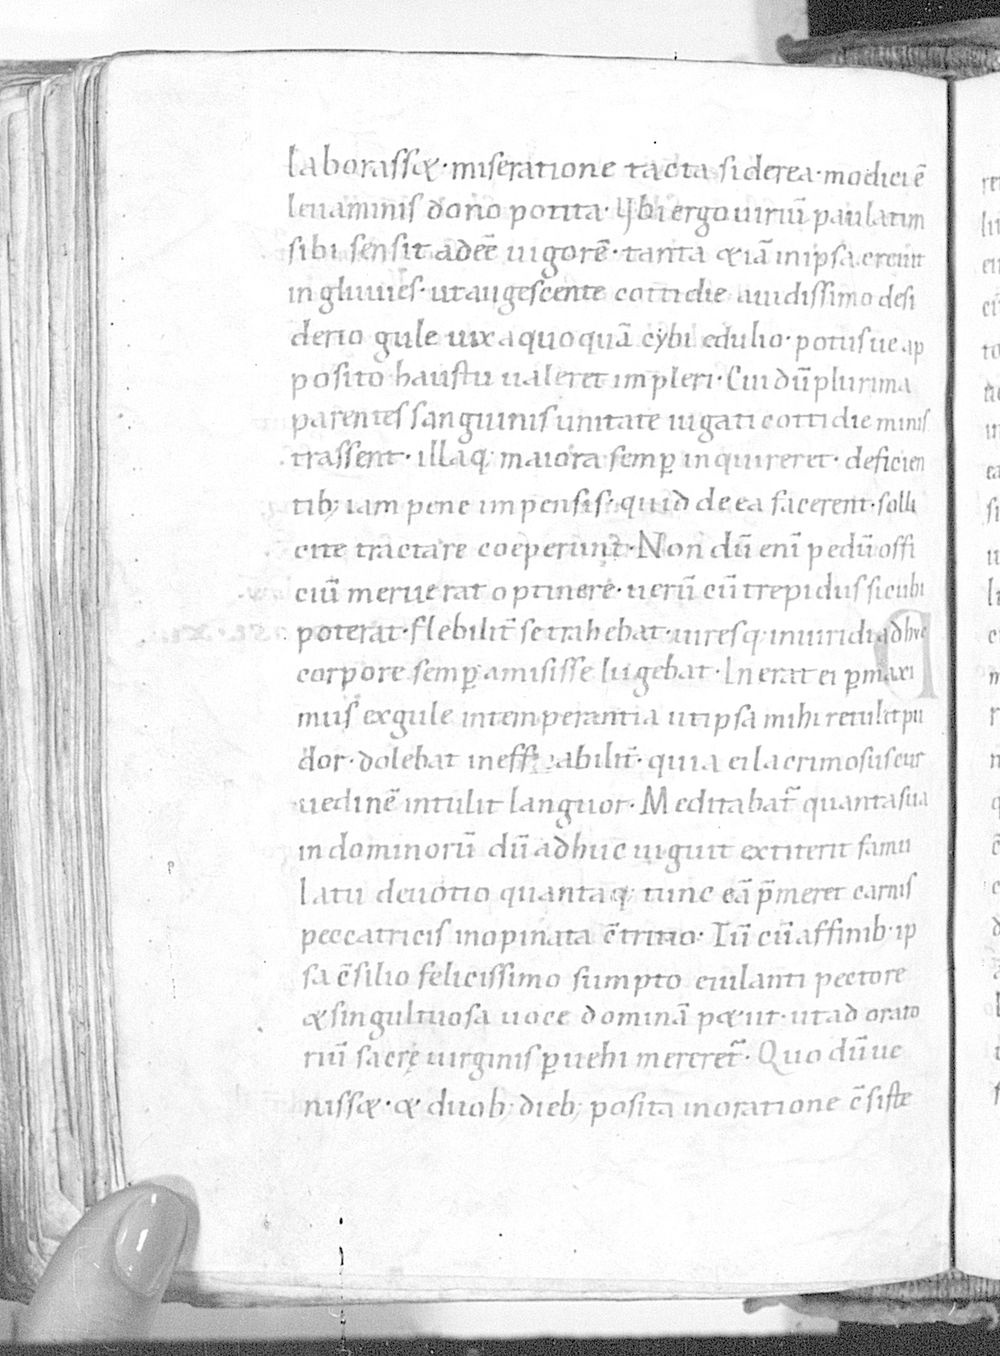 laborass&· miseratione tacta siderea· modici ē
leuaminis dono potita· Vbi ergo uiriū paulatim
sibi sensit adeē uigorē· tanta &iā in ipsa creuit
ingluuies· ut augescente cottidie auidissimo desi
derio gule uix a quoquā cybi edulio· potus ue ap
posito haustu ualeret impleri· Cui dū plurima
parentes sanguinis unitate iugati cottidie minis
trassent· illaq; maiora semp̄ inquireret· deficien
tib; iam pene impensis· quid de ea facerent· solli
cite tractare coeperunt· Non dū enī pedū offi
ciū meruerat optinere· uerū cū trepidus sicubi
poterat· flebilit̄ se trahebat· uiresq; in uiridi adhuc
corpore semp̄ amisisse lugebat· Inerat ei p̄maxi
mus ex gule intemperantia ut ipsa mihi retulit pu
dor· dolebat ineffabilit̄· quia ei lacrimosus eur
uedinē intulit languor· Meditabat̄ quanta sua
in dominorū dū adhuc uiguit extiterit famu
latu deuotio quantaq; tunc eā p̄meret carnis
peccatricis inopinata c̄tritio· Tū cū affinib· ip
sa c̄silio felicissimo sumpto eiulanti pectore
& singultuosa uoce dominā p&iit· ut ad orato
riū sacrę uirginis p̄uehi mereret̄· Quo dū ue
niss&· & duob; dieb; posita in oratione c̄siste